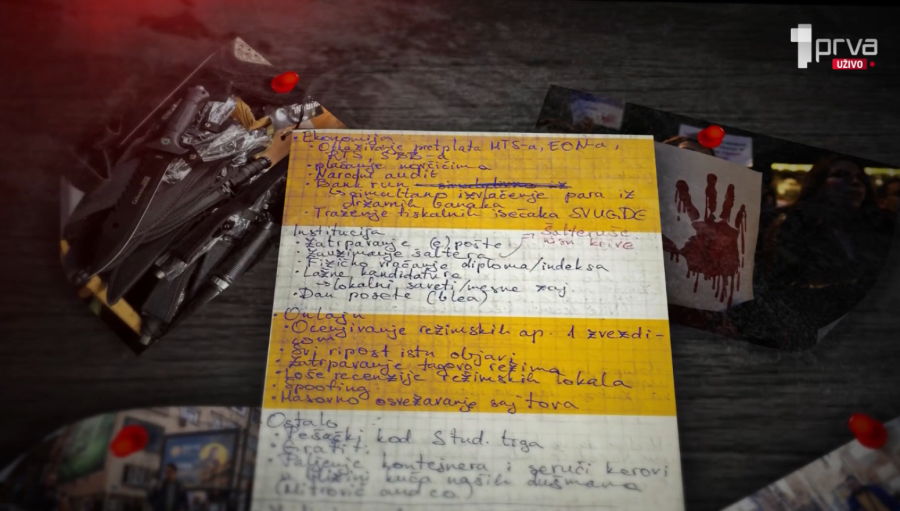 1prva
UŽIVO
• Ekonomija
• Otkazivanje pretplata MTS-a, EON-a,
RTS, SBB-a
• plaćanje novčićima
• Narodni audit
• Bank run
↳ simultano izvlačenje para iz
državnih banaka
• Traženje fiskalnih isečaka SVUGDE
Institucije
• Zatrpavanje (e)pošte
šalteruše
nisu krive
• Zauzimanje šaltera
• Fizičko vraćanje diploma/indeksa
• Lažne kandidature
→ lokalni saveti/mesne zaj.
• Dan posete (blea)
• Onlajn
• Ocenjivanje režimskih ap. 1 zvezdi-
com
• Svi ripost istu objavi
• Zatrpavanje tagova režima
• Loše recenzije režimskih lokala
• Spoofing
• Masovno osvežavanje sajtova
Ostalo
• Pešački kod Stud. trga
• Grafit.
• Paljenje kontejnera i
u blizini kuća naših dušmana
(Mitrović and co)